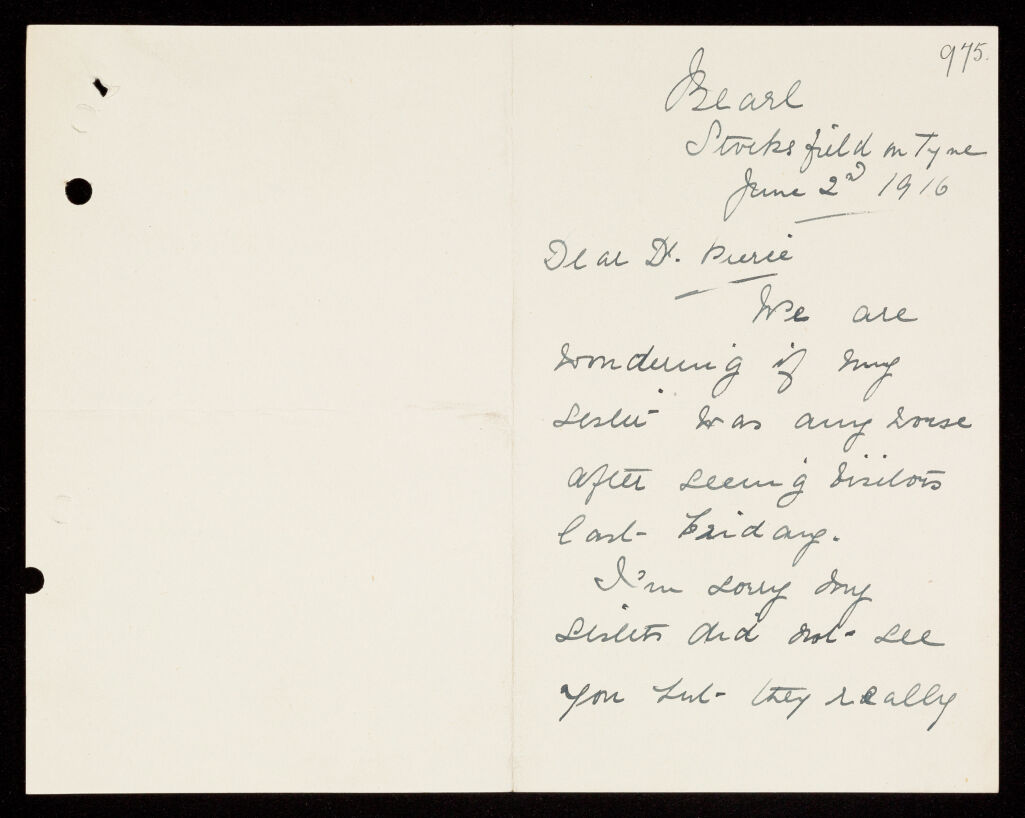 975.
Bearl
Stocksfield on Tyne
June 2nd 1916
Dear Dr. Pierie
We are
wondering if my
sister was any worse
after seeing visitors
last Friday.
I'm sorry my
sisters did not see
you but they really